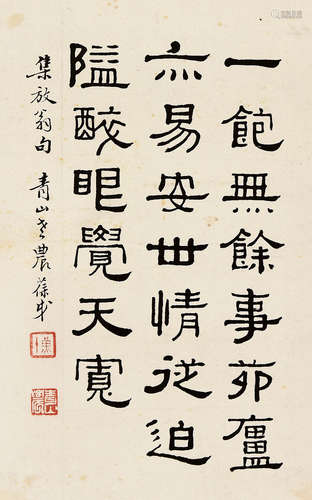 一飽無餘事茆廬
亦易安世情從迫
隘醉眼覺天寬
集放翁句 青山老農葆戉